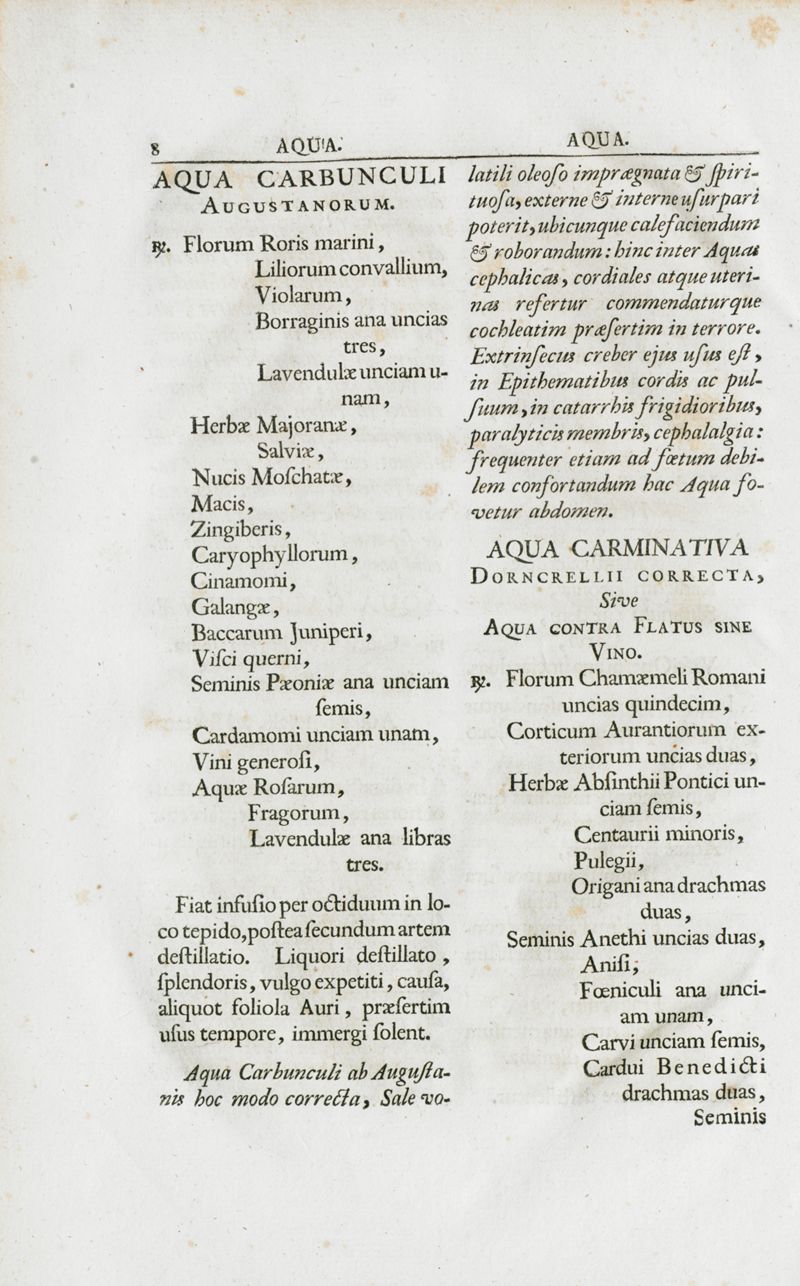 8 AQUA. AQUA.
AQUA CARBUNCULI
AUGUSTANORUM.
℞. Florum Roris marini,
Liliorum convallium,
Violarum,
Borraginis ana uncias
tres,
Lavendulæ unciam u-
nam,
Herbæ Majoranæ,
Salviæ,
Nucis Moſchatæ,
Macis,
Zingiberis,
Caryophyllorum,
Cinamomi,
Galangæ,
Baccarum Juniperi,
Viſci querni,
Seminis Pæoniæ ana unciam
ſemis,
Cardamomi unciam unam,
Vini generoſi,
Aquæ Roſarum,
Fragorum,
Lavendulæ ana libras
tres.
Fiat infuſio per octiduum in lo-
co tepido, poſtea ſecundum artem
deſtillatio. Liquori deſtillato,
ſplendoris, vulgo expetiti, cauſa,
aliquot foliola Auri, præſertim
uſus tempore, immergi ſolent.
Aqua Carbunculi ab Auguſta-
nis hoc modo correcta, Sale vo-
latili oleoſo imprægnata & ſpiri-
tuoſa, externe & interne uſurpari
poterit, ubicunque calefaciendum
& roborandum: hinc inter Aquas
cephalicas, cordiales atque uteri-
nas refertur commendaturque
cochleatim præſertim in terrore.
Extrinſecus creber ejus uſus eſt,
in Epithematibus cordis ac pul-
ſuum, in catarrhis frigidioribus,
paralyticis membris, cephalalgia:
frequenter etiam ad fœtum debi-
lem confortandum hac Aqua fo-
vetur abdomen.
AQUA CARMINATIVA
DORNCRELLII CORRECTA,
Sive
AQUA CONTRA FLATUS SINE
VINO.
℞. Florum Chamæmeli Romani
uncias quindecim,
Corticum Aurantiorum ex-
teriorum uncias duas,
Herbæ Abſinthii Pontici un-
ciam ſemis,
Centaurii minoris,
Pulegii,
Origani ana drachmas
duas,
Seminis Anethi uncias duas,
Aniſi,
Fœniculi ana unci-
am unam,
Carvi unciam ſemis,
Cardui Benedicti
drachmas duas,
Seminis